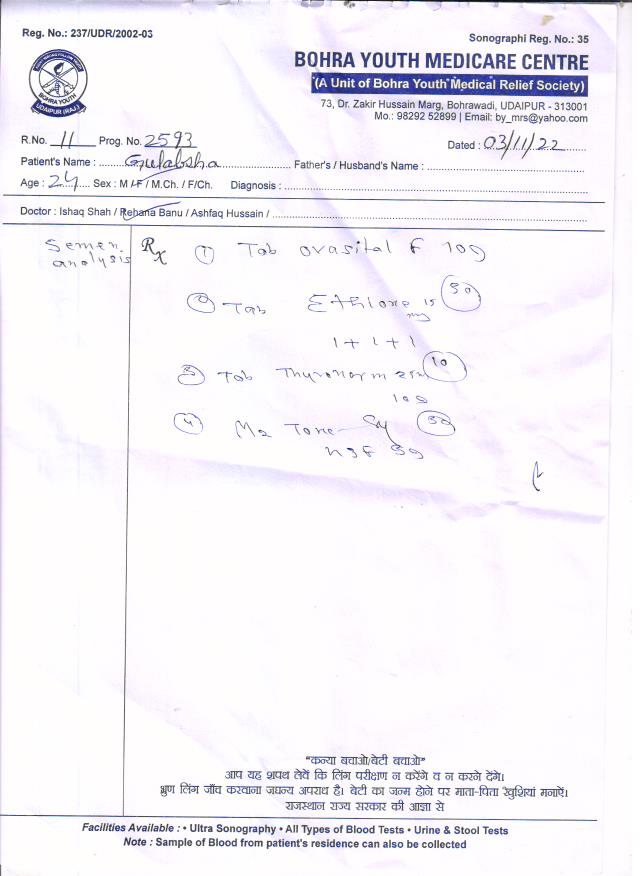 Reg. No.: 237/UDR/2002-03
Sonographi Reg. No.: 35
BOHRA YOUTH MEDICARE CENTRE
(A Unit of Bohra Youth Medical Relief Society)
73, Dr. Zakir Hussain Marg, Bohrawadi, UDAIPUR - 313001
Mo.: 98292 52899 | Email: by_mrs@yahoo.com
BOHRA YOUTH
UDAIPUR (RAJ.)
R.No. 11 Prog. No. 2593 Dated : 03/11/22
Patient's Name : Gulabsha Father's / Husband's Name :
Age : 24 Sex : M / F / M.Ch. / F/Ch. Diagnosis :
Doctor : Ishaq Shah / Rehana Banu / Ashfaq Hussain /
Semen analysis
Rx
1 Tab ovasital F 10g
2 Tab 15 mg 30
1 + 1 + 1
3 Tab Thyronorm 10
4 M2 Tone Sy 30
"कन्या बचाओ/बेटी बचाओ"
आप यह शपथ लेवें कि लिंग परीक्षण न करेंगे व न करने देंगे।
भ्रुण लिंग जाँच करवाना जघन्य अपराध है। बेटी का जन्म होने पर माता-पिता खुशियां मनाऐं।
राजस्थान राज्य सरकार की आज्ञा से
Facilities Available : • Ultra Sonography • All Types of Blood Tests • Urine & Stool Tests
Note : Sample of Blood from patient's residence can also be collected